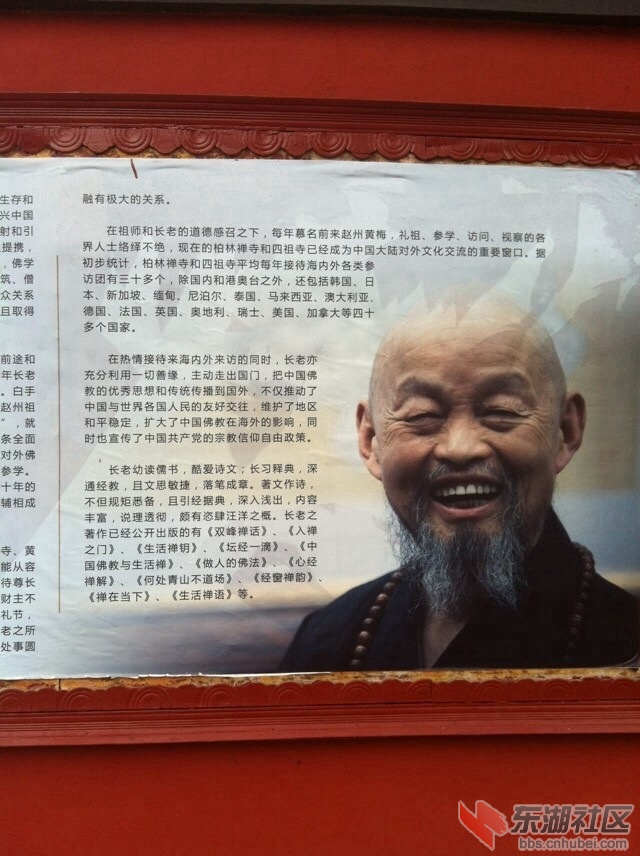 生存和
兴中国
射和引
提携，
，佛学
筑、僧
众关系
且取得
前途和
年长老
。白手
赵州祖
”，就
条全面
对外佛
参学。
十年的
辅相成
寺、黄
能从容
待尊长
财主不
礼节，
老之所
处事圆
融有极大的关系。
在祖师和长老的道德感召之下，每年慕名前来赵州黄梅，礼祖、参学、访问、视察的各
界人士络绎不绝，现在的柏林禅寺和四祖寺已经成为中国大陆对外文化交流的重要窗口。据
初步统计，柏林禅寺和四祖寺平均每年接待海内外各类参
访团有三十多个，除国内和港奥台之外，还包括韩国、日
本、新加坡、缅甸、尼泊尔、泰国、马来西亚、澳大利亚、
德国、法国、英国、奥地利、瑞士、美国、加拿大等四十
多个国家。
在热情接待来海内外来访的同时，长老亦
充分利用一切善缘，主动走出国门，把中国佛
教的优秀思想和传统传播到国外，不仅推动了
中国与世界各国人民的友好交往，维护了地区
和平稳定，扩大了中国佛教在海外的影响，同
时也宣传了中国共产党的宗教信仰自由政策。
长老幼读儒书，酷爱诗文；长习释典，深
通经教，且文思敏捷，落笔成章。著文作诗，
不但规矩悉备，且引经据典，深入浅出，内容
丰富，说理透彻，颇有恣肆汪洋之概。长老之
著作已经公开出版的有《双峰禅话》、《入禅
之门》、《生活禅钥》、《坛经一滴》、《中
国佛教与生活禅》、《做人的佛法》、《心经
禅解》、《何处青山不道场》、《经窗禅韵》、
《禅在当下》、《生活禅语》等。
东湖社区
bbs.cnhubei.com